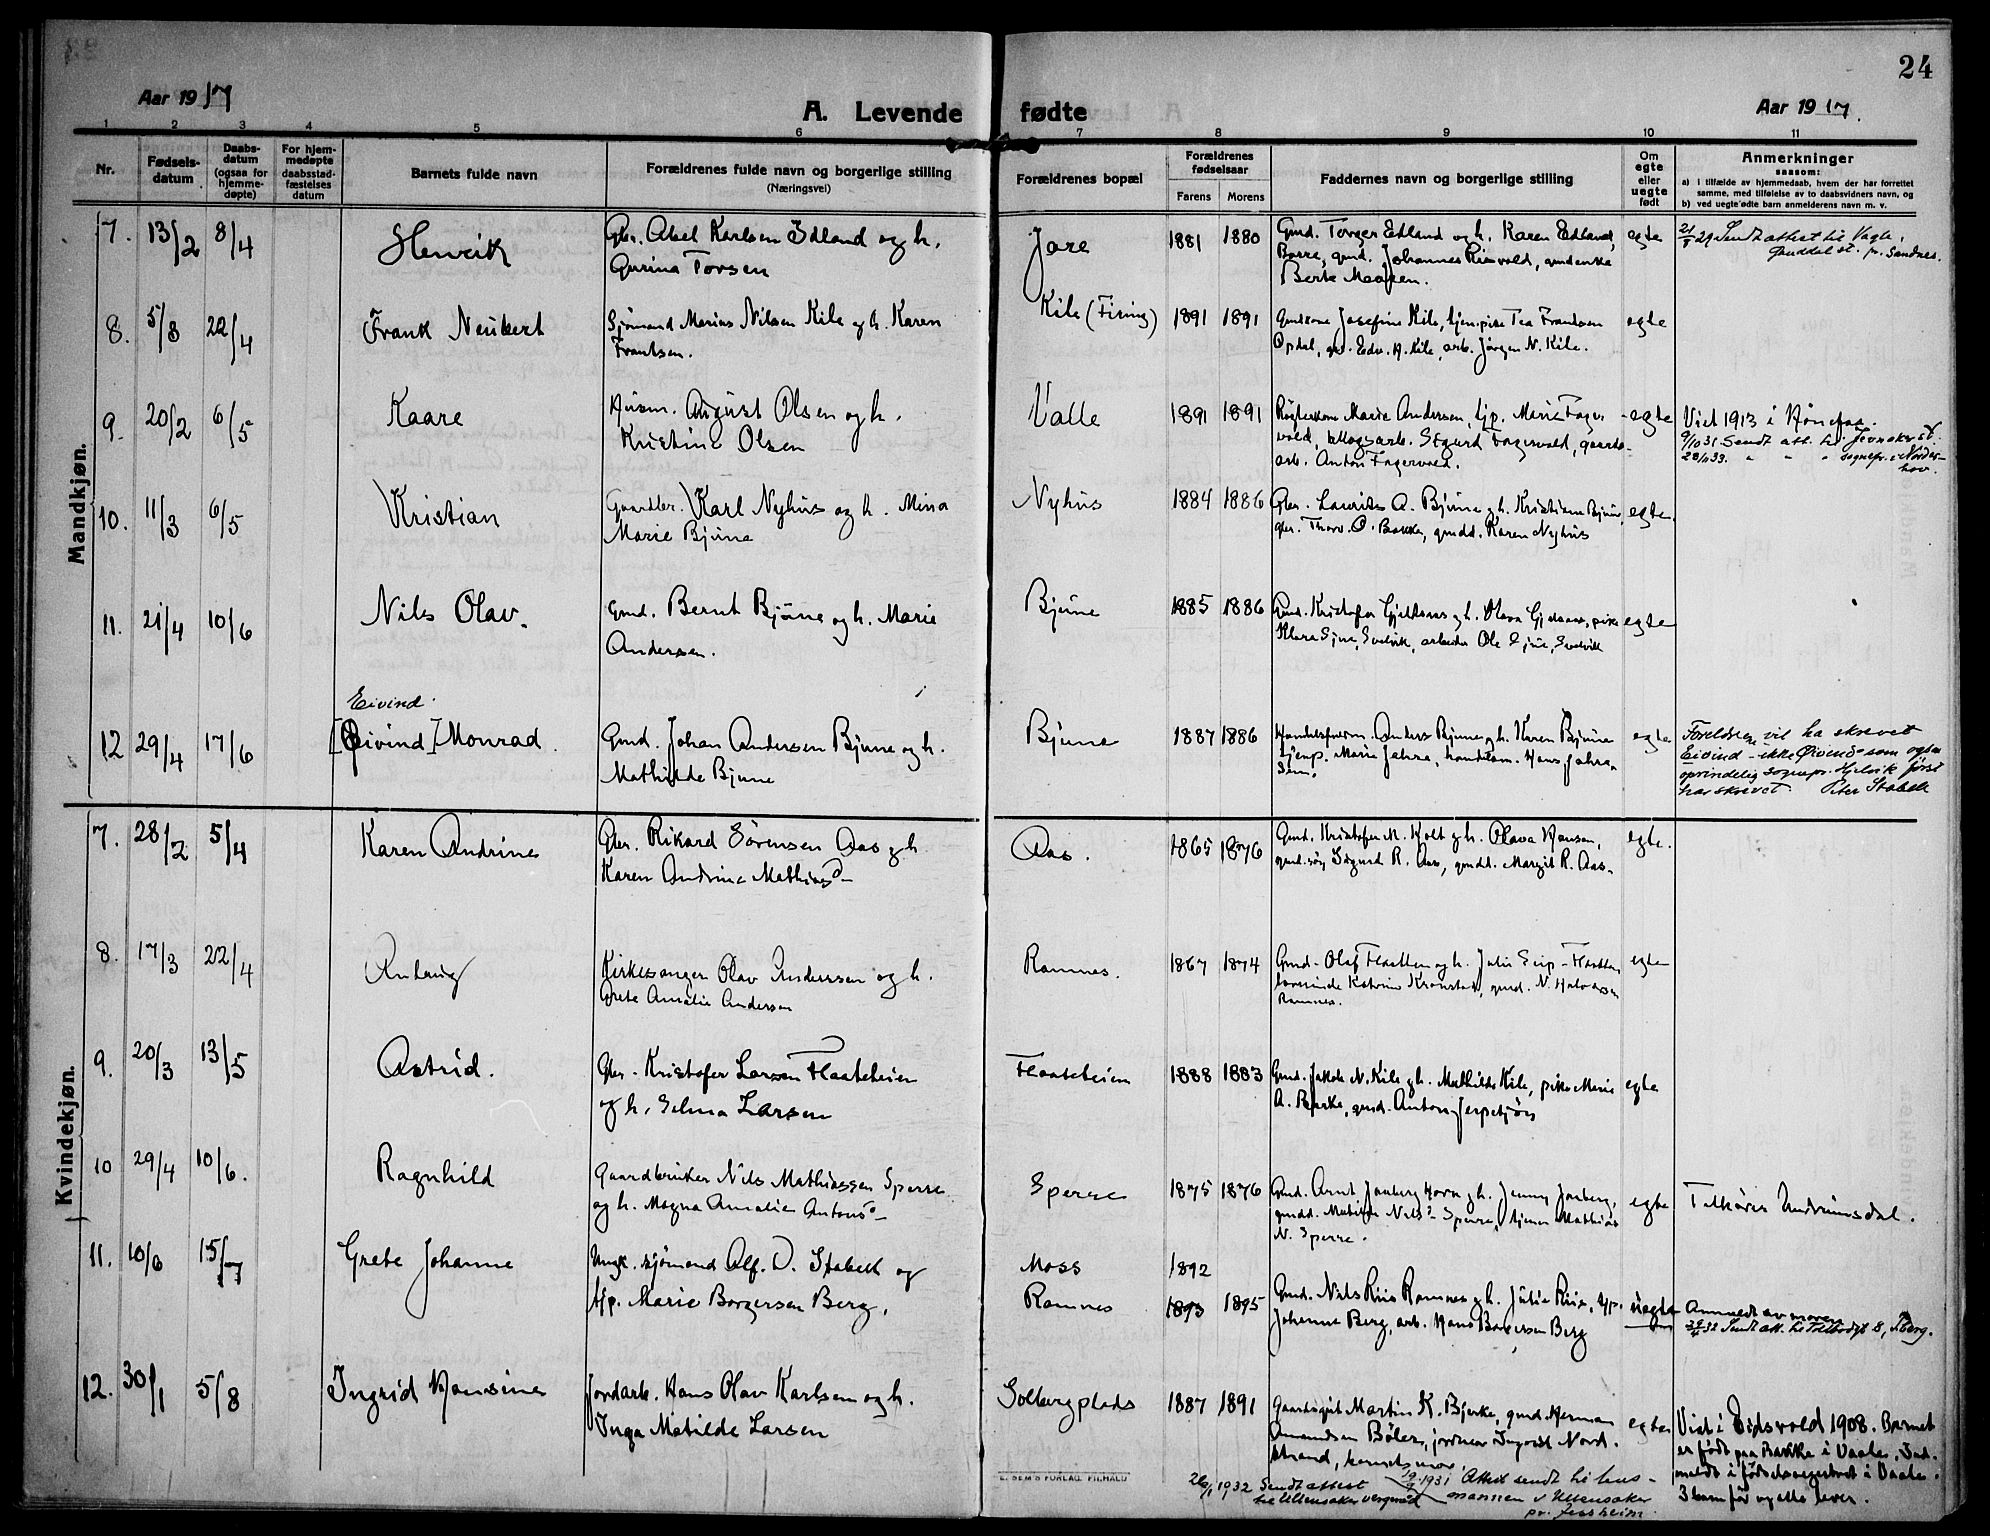 24
Aar 1917
A. Levende fødte
Aar 1917.
1 2 3 4 5 6 7 8 9 10 11
Nr.
Fødsels-
datum
Daabs-
datum
(ogsaa for
hjemme-
døpte)
For hjem-
medøpte
daabsstad-
fæstelses
datum
Barnets fulde navn
Forældrenes fulde navn og borgerlige stilling
(Næringsvei)
Forældrenes bopæl
Forældrenes
fødselsaar
Farens Morens
Faddernes navn og borgerlige stilling
Om
egte
eller
uegte
født
Anmerkninger
saasom:
a) i tilfælde av hjemmedaab, hvem der har forrettet
samme, med tilføielse av to daabsvidners navn, og
b) ved uegte fødte barn anmelderens navn m. v.
Mandkjøn.
7. 13/2 8/4 Henrik
Gbr. Abel Karlsen Edland og h.
Gurina Torsen
Jare 1881 1880
Gmd. Torger Edland og h. Karen Edland,
Borre, gmd. Johannes, gmdenke
Berte
egte
Sendt attest til Vagle,
Ganddal st. pr. Sandnes.
8. 5/3 22/4 Frank Neubert
Sjømand Marius Nilsen Kile og h. Karen
Frantsen.
Kile (Firing) 1891 1891
Gmdkone Josefine Kile, tjen.pike Tea Frantsen
Opdal, gbr. Edv. A. Kile, arb. Jørgen N. Kile.
egte
9. 20/2 6/5 Kaare
Husm. August Olsen og h.
Kristine Olsen
Valle 1891 1891
Røgterkone Marie Andersen, tjp. Marie Fager-
vold, Sigurd Fagervold, gaards-
arb. Anton Fagervold.
egte
Viet 1913 i Hønefos.
9/10 31 Sendt att. til Jevnaker st.
28/11 33. " " " sognepr. i Norder-
hov.
10. 11/3 6/5 Kristian
Gaardbr. Karl Nyhus og h. Mina
Marie Bjune
Nyhus 1884 1886
Gbr. Laurits A. Bjune og h. Kristiane Bjune,
gbr. Thorv. O. Bakke, gmdd. Karen Nyhus
egte.
11. 21/4 10/6 Nils Olav.
Gmd. Bernt Bjune og h. Marie
Andersen.
Bjune 1885 1886
Gmd. Kristofer og h. Olava, pike
Klara, Svelvik, arbeider Ole, Svelvik
egte
Eivind.
12 29/4 17/6 [Øivind] Monrad
Gmd. Johan Andersen Bjune og h.
Mathilde Bjune
Bjune 1887 1886
Handelsform. Anders Bjune og h. Karen Bjune
tjenp. Marie Jahre, handelsm. Hans Jahre,
Sem.
egte
Foreldrene vil ha skrevet
Eivind - ikke Øivind som
oprindelig sognepr. Hjelvik først
har skrevet. Peter Stabell
Kvindekjøn.
7. 28/2 5/4 Karen Andrine
Gbr. Rikard Sørensen Aas og h.
Karen Andrine Mathias d-
Aas. 1865 1876
Gmd. Kristofer M. Holt og h. Olava Hansen,
gmd.søn Sigurd R. Aas, gmdd. Margit R. Aas-
egte.
8. 17/3 22/4
Kirkesanger Olav Andersen og h.
Grete Amalie Andersen
Ramnes. 1867 1874
Gmd. Olaf Flaatten og h. Julie Flaatten,
lærerinde Katrine Kronstad, gmd. N. Halvorsen
Ramnes.
egte
9. 20/3 13/5 Astrid.
Gbr. Kristofer Larsen Flaateteien
og h. Selma Larsen
Flaateteien 1888 1883
Gmd. Jakob N. Kile og h. Mathilde Kile, pike Marie
A. Bakke, gmd. Anton
egte
10 29/4 10/6. Ragnhild
Gaardbruker Nils Mathiassen Sperre
og h. Magna Amalie Antons d-
Sperre 1875 1876
Gmd. Arnt Jonberg Horn og h. Jenny Jonberg,
gmdd. Matilde Nils d- Sperre, tjener Mathias
N. Sperre.
egte
Undrumsdal.
11. 10/6 15/7 Grete Johanne
Ungk. sjømand Alf. D. Stabell og
tjp. Marie Borgersen Berg.
Moss 1892
Ramnes 1893 1895
Gmd. Nils Riis Ramnes og h. Julie Riis, tjp.
Johanne Berg, arb. Hans Borgersen Berg
uegte
Anmeldt av moren
Sendt att. til Tollbodgt 8, Tbrg.
12. 30/1 5/8 Ingrid Hansine
Jordarb. Hans Olav Karlsen og h.
Inga Matilde Larsen
Solbergplads 1887 1891
Gaardsgut Martin K. Bjerke, gmd. Herman
Amundsen Bøler, Ingvald Nord-
strand, barnets mor.
egte
Viet i Eidsvold 1908. Barnet
er født paa Bakke i Vaale. Ind-
meldt i fødselsregistret i Vaale.
3 barn før og alle lever.
E. SEM'S FORLAG. FR.HALD
26/1 1932 Sendt attest
til Ullensaker vergeraad
19/9 1931 Attest sendt til lens-
mannen i Ullensaker
pr. Jessheim.